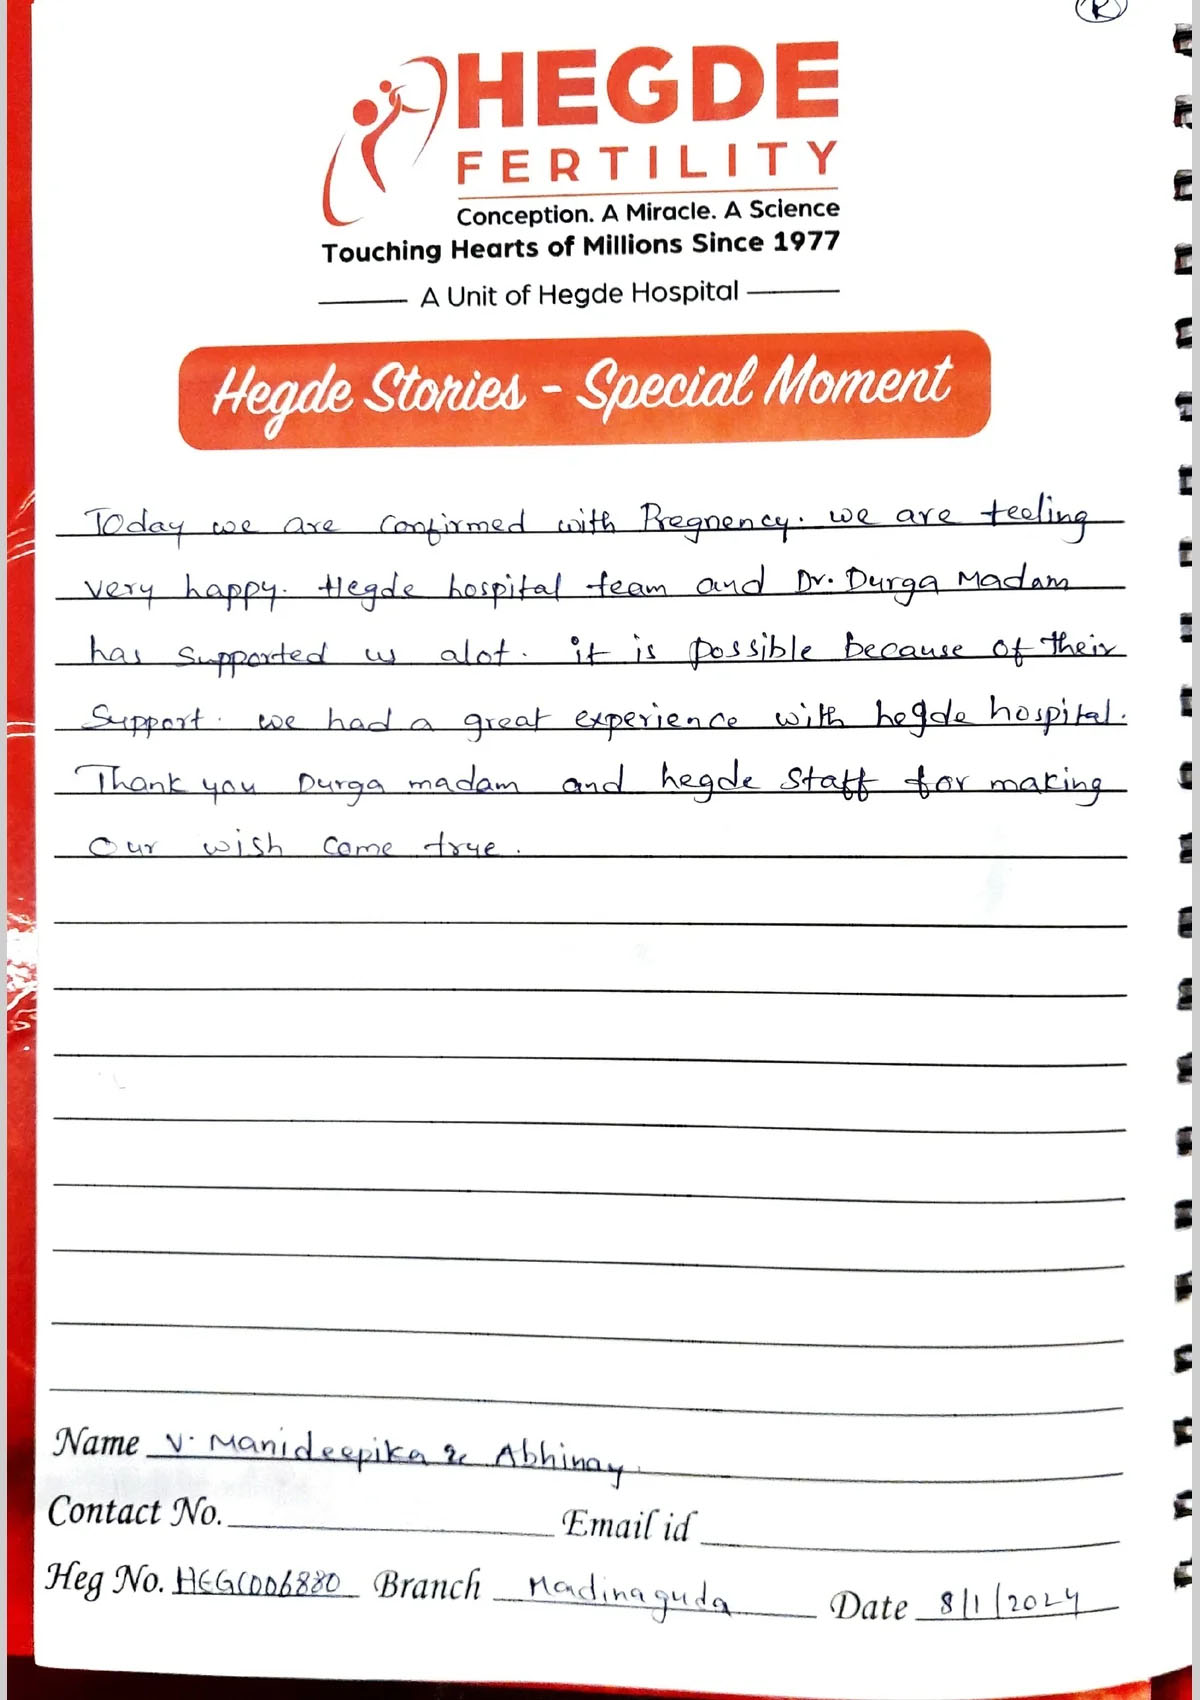 R
HEGDE
FERTILITY
Conception. A Miracle. A Science
Touching Hearts of Millions Since 1977
A Unit of Hegde Hospital
Hegde Stories - Special Moment
Today we are confirmed with Pregnency. we are feeling
very happy. Hegde hospital team and Dr. Durga Madam
has supported us alot. it is possible because of their
Support. we had a great experience with hegde hospital.
Thank you Durga madam and hegde staff for making
Our wish came true.
Name V. Manideepika & Abhinay
Contact No. Email id
Heg No. HEGC006880 Branch Madinaguda Date 8/1/2024